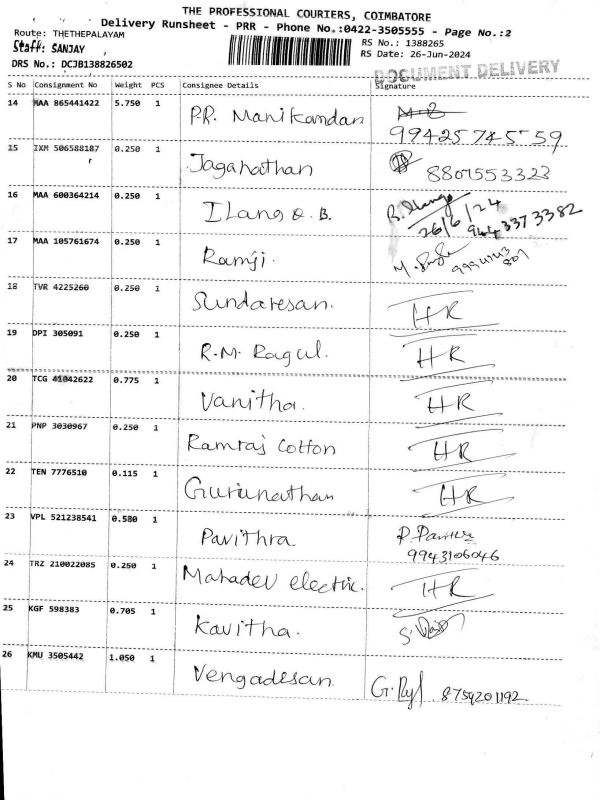 THE PROFESSIONAL COURIERS, COIMBATORE
Delivery Runsheet - PRR - Phone No.:0422-3505555 - Page No.:2
Route: THETHEPALAYAM
RS No.: 1388265
Staff: SANJAY
RS Date: 26-Jun-2024
DRS No.: DCJB138826502
DOCUMENT DELIVERY
S No Consignment No Weight PCS Consignee Details Signature
14 MAA 865441422 5.750 1 P.R. Manikandan
99425 745 59
15 IXM 506588187 0.250 1 Jaganathan 8807553323
16 MAA 600364214 0.250 1 Ilango. B. B. Ilango
26/6/24
944 3373382
17 MAA 105761674 0.250 1 Ramji.
18 TVR 4225260 0.250 1 Sundaresan. HR
19 DPI 305091 0.250 1 R.M. Ragul. HR
20 TCG 41042622 0.775 1 Vanitha. HR
21 PNP 3030967 0.250 1 Ramraj Cotton HR
22 TEN 7776510 0.115 1 Gurunathan HR
23 VPL 521238541 0.580 1 Pavithra P. Pavithra
9943106046
24 TRZ 210022085 0.250 1 Mahadev electric. HR
25 KGF 598383 0.705 1 Kavitha.
26 KMU 3505442 1.050 1 Vengadesan. 8759201192